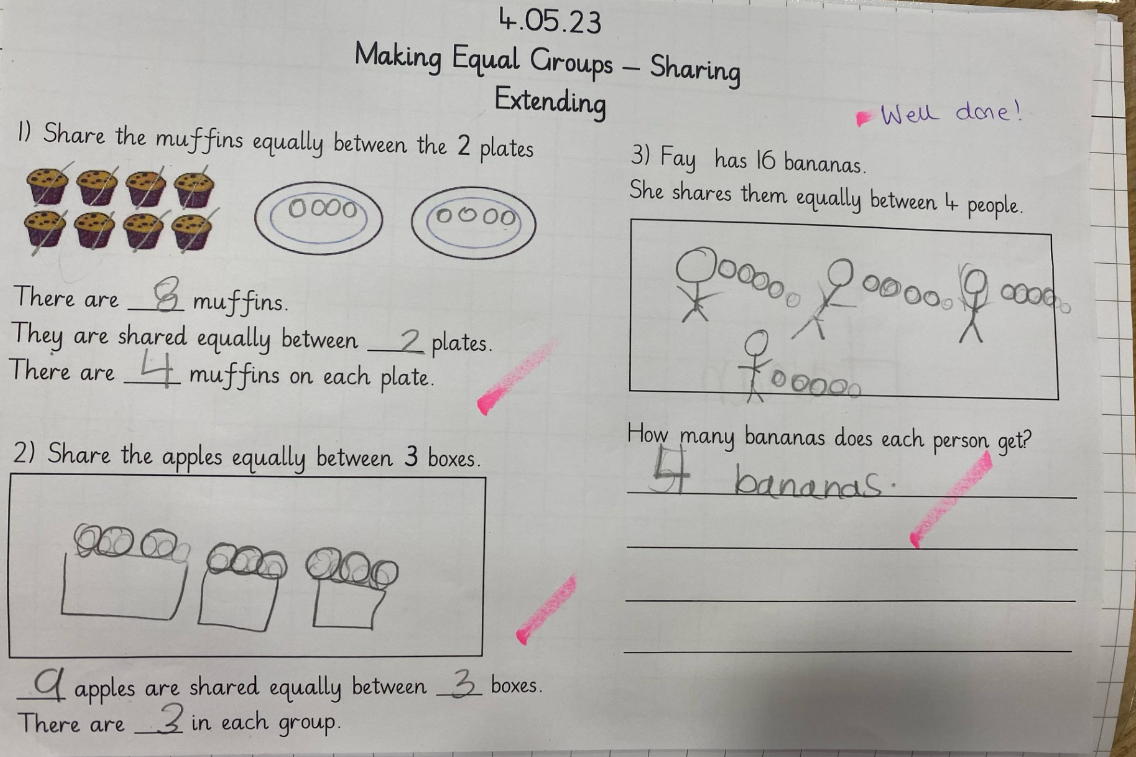 4.05.23
Making Equal Groups – Sharing
Extending
Well done!
1) Share the muffins equally between the 2 plates
There are 8 muffins.
They are shared equally between 2 plates.
There are 4 muffins on each plate.
2) Share the apples equally between 3 boxes.
9 apples are shared equally between 3 boxes.
There are 3 in each group.
3) Fay has 16 bananas.
She shares them equally between 4 people.
How many bananas does each person get?
4 bananas.